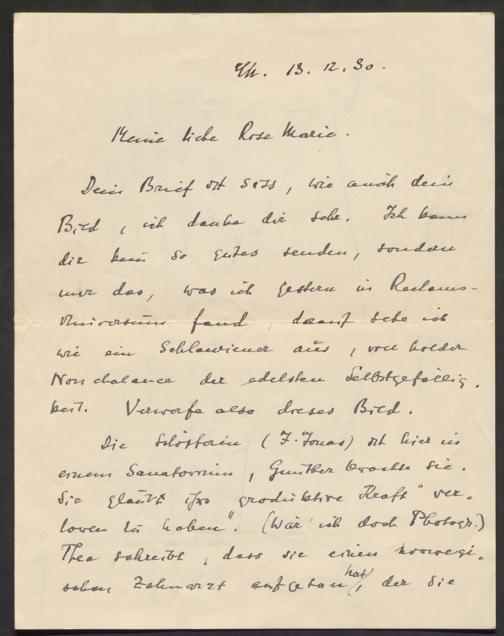 13.12.30.
Meine liebe Rose Marie.
Dein Brief ist süss, wie auch dein
Bild, ich danke dir sehr. Ich kann
dir kein so gutes senden, sondern
nur das, was ich gestern in Reclams-
Universum fand, darauf sehe ich
wie ein Schlawiener aus, voll holder
Nonchalance der edelsten Selbstgefällig-
keit. Verwerfe also dieses Bild.
Die (J. Jonas) ist hier in
einem Sanatorium, Gunther brachte sie.
Sie glaubt ihre "produktive Kraft ver-
loren zu haben". (Wär' ich doch Photogr.)
Thea schreibt, dass sie einen norwegi-
schen Zahnarzt aufgetan hat, der sie